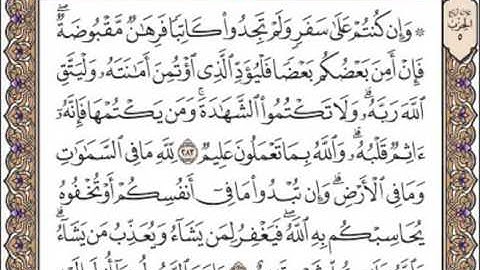 ۞ وَإِن كُنتُمْ عَلَىٰ سَفَرٍ وَلَمْ تَجِدُوا۟ كَاتِبًا فَرِهَـٰنٌ مَّقْبُوضَةٌ ۖ
فَإِنْ أَمِنَ بَعْضُكُم بَعْضًا فَلْيُؤَدِّ ٱلَّذِى ٱؤْتُمِنَ أَمَـٰنَتَهُۥ وَلْيَتَّقِ
ٱللَّهَ رَبَّهُۥ ۗ وَلَا تَكْتُمُوا۟ ٱلشَّهَـٰدَةَ ۚ وَمَن يَكْتُمْهَا فَإِنَّهُۥٓ
ءَاثِمٌ قَلْبُهُۥ ۗ وَٱللَّهُ بِمَا تَعْمَلُونَ عَلِيمٌ ٢٨٣ لِّلَّهِ مَا فِى ٱلسَّمَـٰوَٰتِ
وَمَا فِى ٱلْأَرْضِ ۗ وَإِن تُبْدُوا۟ مَا فِىٓ أَنفُسِكُمْ أَوْ تُخْفُوهُ
يُحَاسِبْكُم بِهِ ٱللَّهُ ۖ فَيَغْفِرُ لِمَن يَشَآءُ وَيُعَذِّبُ مَن يَشَآءُ ۗ
الحزب
٥